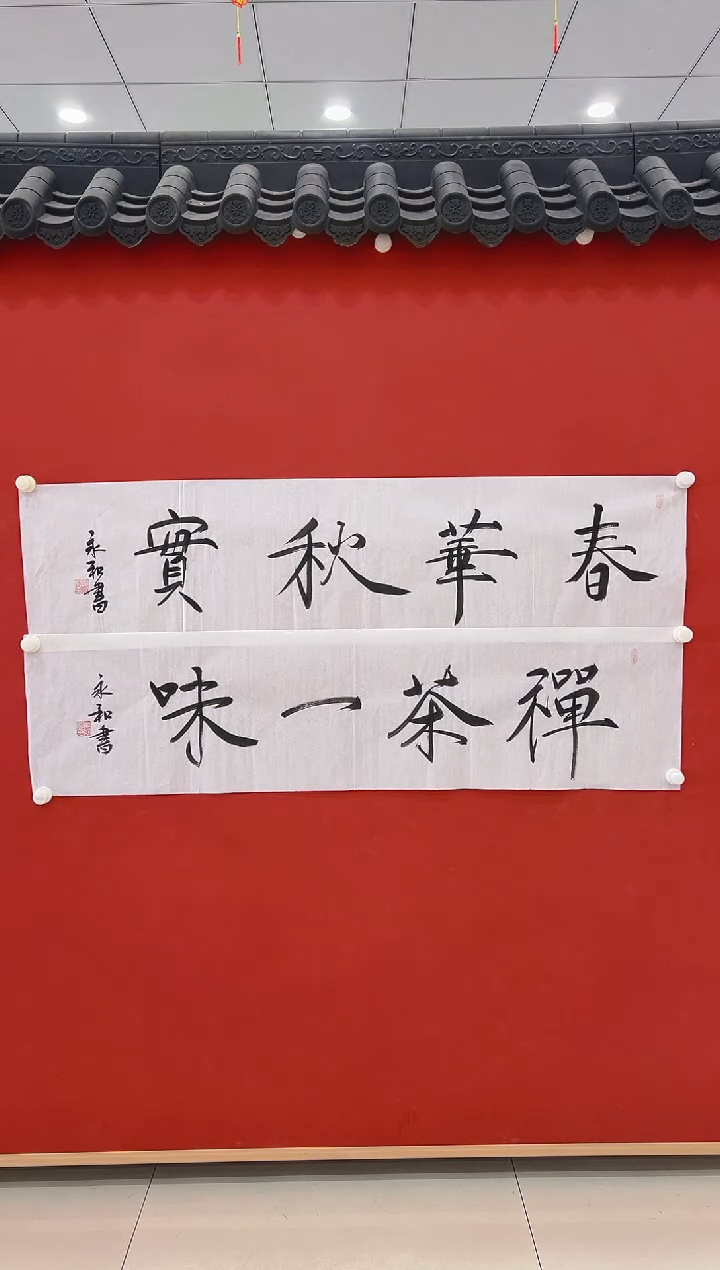 春華秋實
永和書
禪茶一味
永和書